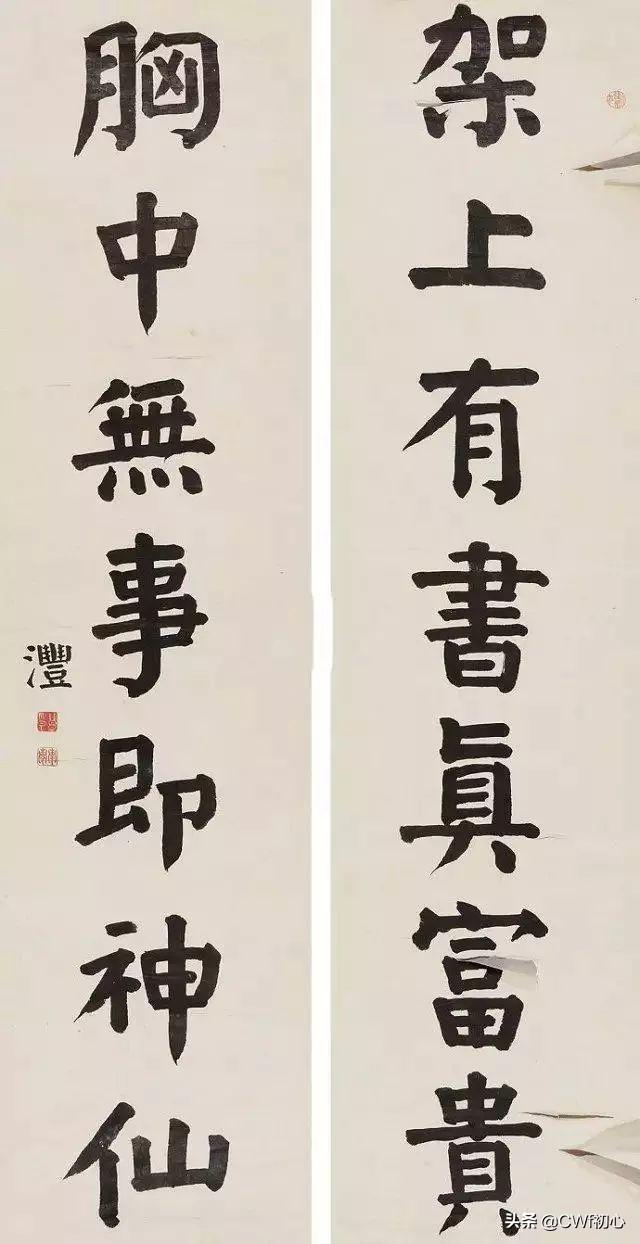 架上有書真富貴
胸中無事即神仙
灃
头条 @CWf初心